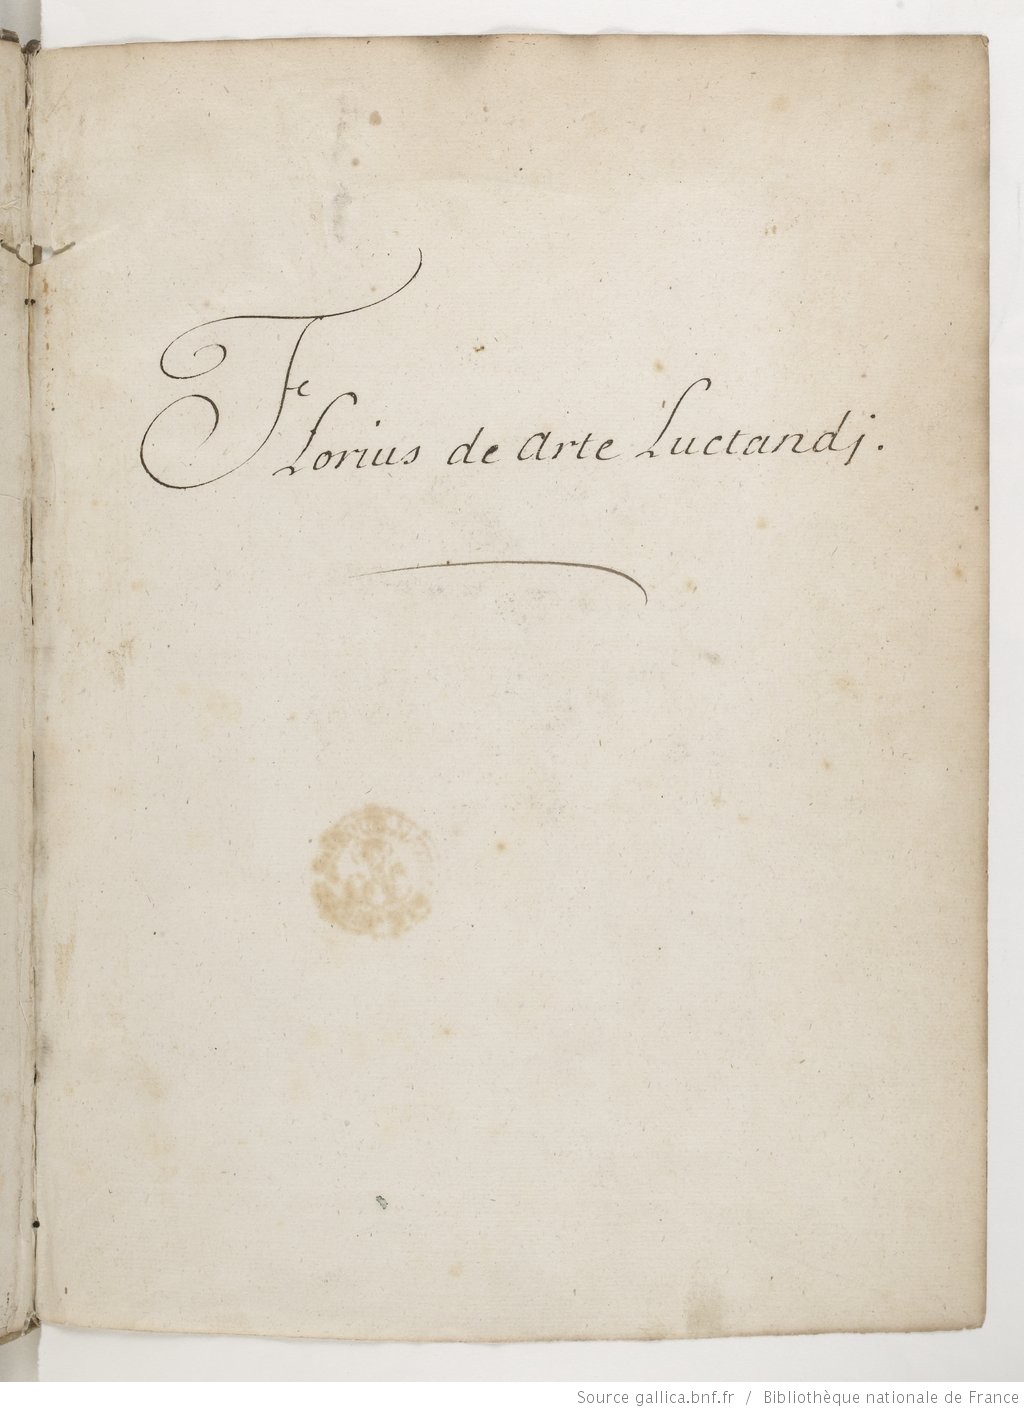 Florius de arte Luctandj.
Source gallica.bnf.fr / Bibliothèque nationale de France